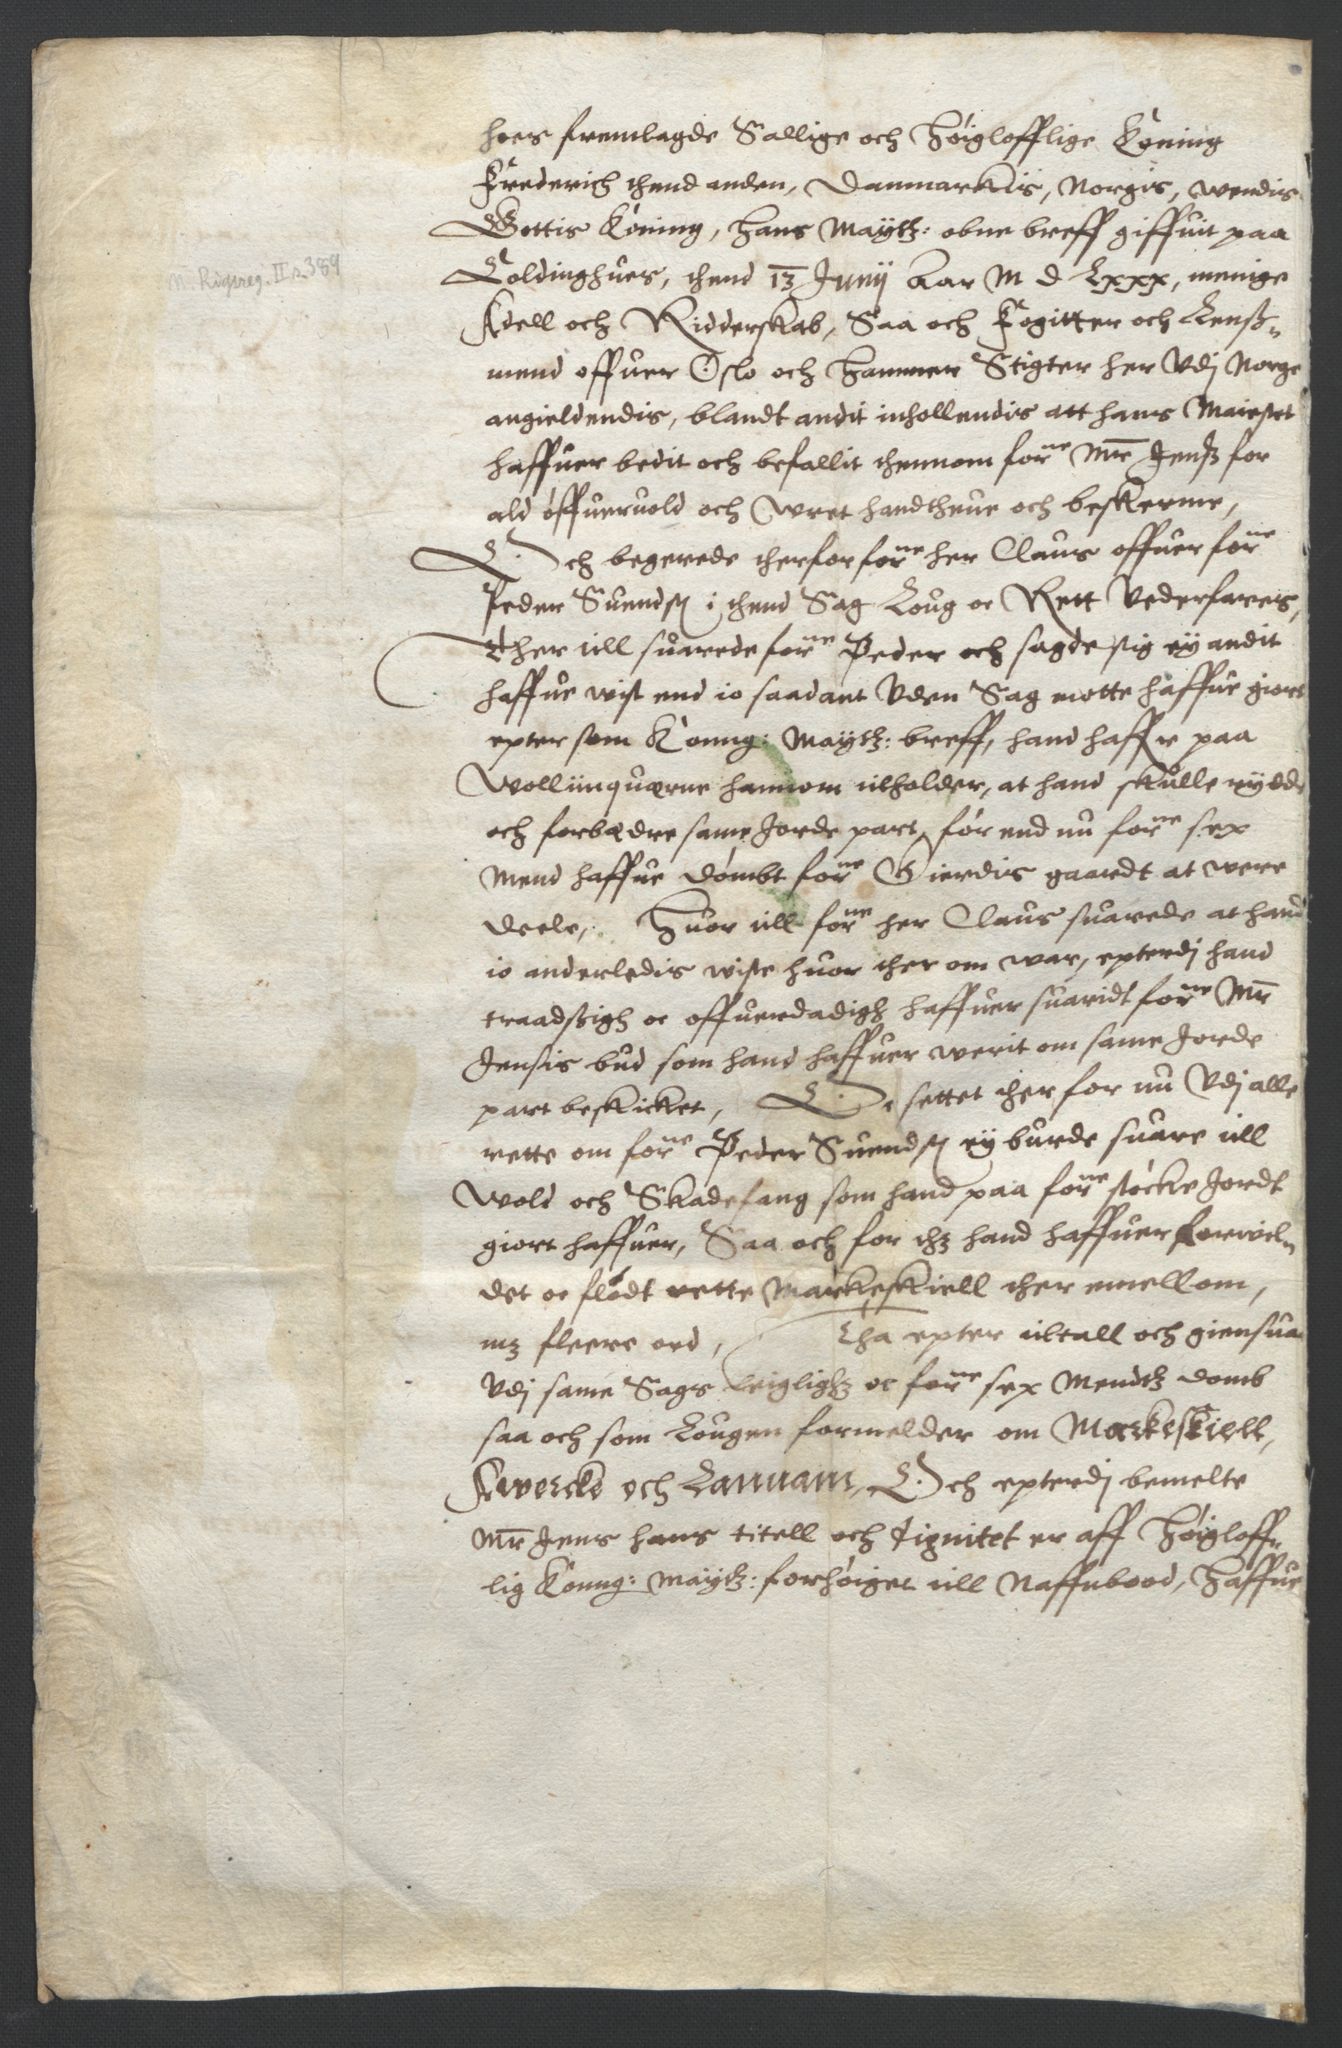 hoes fremlagde Sallige och høiglofflige Koning
Frederich thend anden, Danmarckis, Norgis, Wendis
Gottis Koning, hans Maytz: obne breff giffuit paa
Coldinghues, thend 13 Junij Aar M d Lxxx, menige
Adell och Ridderskab, Saa och Fogitter och Lenß-
mend offuer Oslo och Hammer Stigter her Vdj Norge
angieldendis, blandt andit inhollendis att hans Maiestet
haffuer bedit och befallit thennom forne Mr Jenß for
ald offueruold och Wret handtheue och beskerme,
Och begerede therfor forne her Claus offuer forne
Peder Suendsø i thend Sag Loug oc Rett Vederfares,
Ther till suarede forne Peder och sagde sig ey andit
haffue wist end io saadant Vden Sag motte haffue giort
epter som Konng: Maytz: breff, hand haffr paa
Wollimquærne hannom tilholder, at hand skulle rydde
och forbædre same Jorde part, før end nu forne sex
Mend haffue dømbt forne Gierdis gaardt at were
deele, Huor till forne her Claus suarede at hand
io anderledis wiste huor ther om war, epterdj hand
traadßigh oc offuerdadigh haffuer suaridt forne Mr
Jensis bud som hand haffuer werit om same Jorde
part beskicket, Oc settet ther for nu Vdj alle
rette om forne Peder Suendsø ey burde suare till
Wold och Skadefang som hand paa forne støcke Jordt
giort haffuer, Saa och for thz hand haffuer forvel-
det oc flødt rette Markeskiell ther emellom,
mz fleere ord, Tha epter tiltall och giensuar
Vdj same Sags leiglighz oc forne sex Mendtz domb
saa och som Lougen formelder om Markeskiell,
Awercke och Lannam, Och epterdj bemelte
Mr Jens hans titell och dignitet er aff høigloff-
lig Konng: Maytz: forhøiget till Naffnbood, haffue
M. Rigsreg. II s. 389